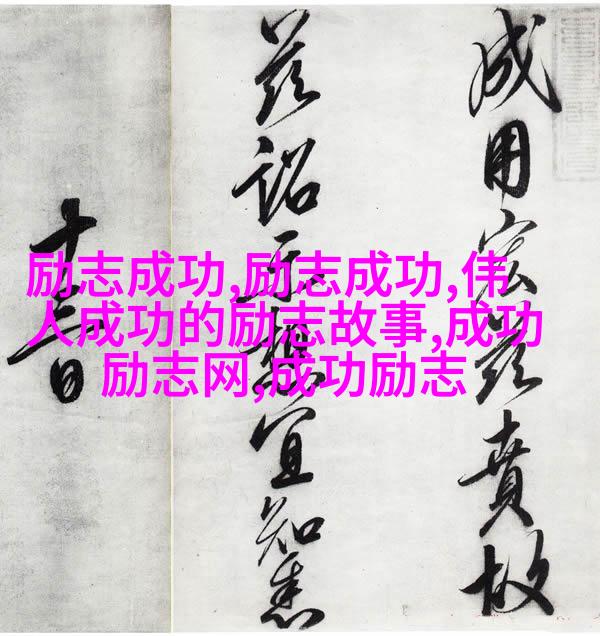 励志成功,励志成功,伟
人成功的励志故事,成功
励志网,成功励志
成用宏茲賁故
茲詔示想宜知悉
十日